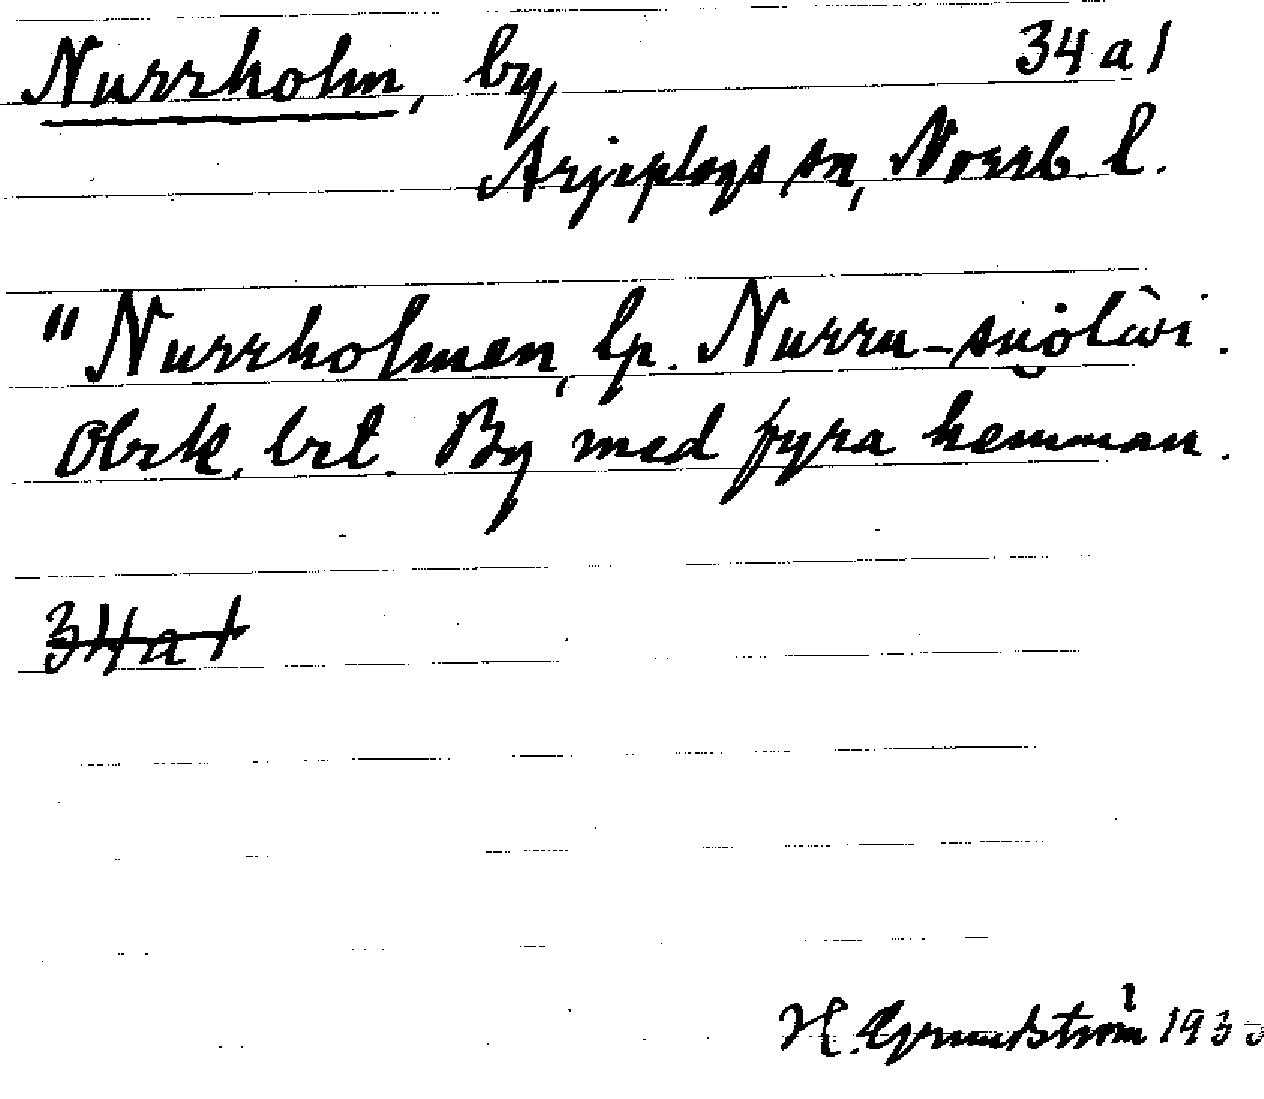 Nurrholm, by 34 a 1
Arjeplogs sn, Norrb. l.
"Nurrholmen, lp. Nurru-suölüi.
Obrk. brt. By med fyra hemman.
34 a 1
H. Grundström 193